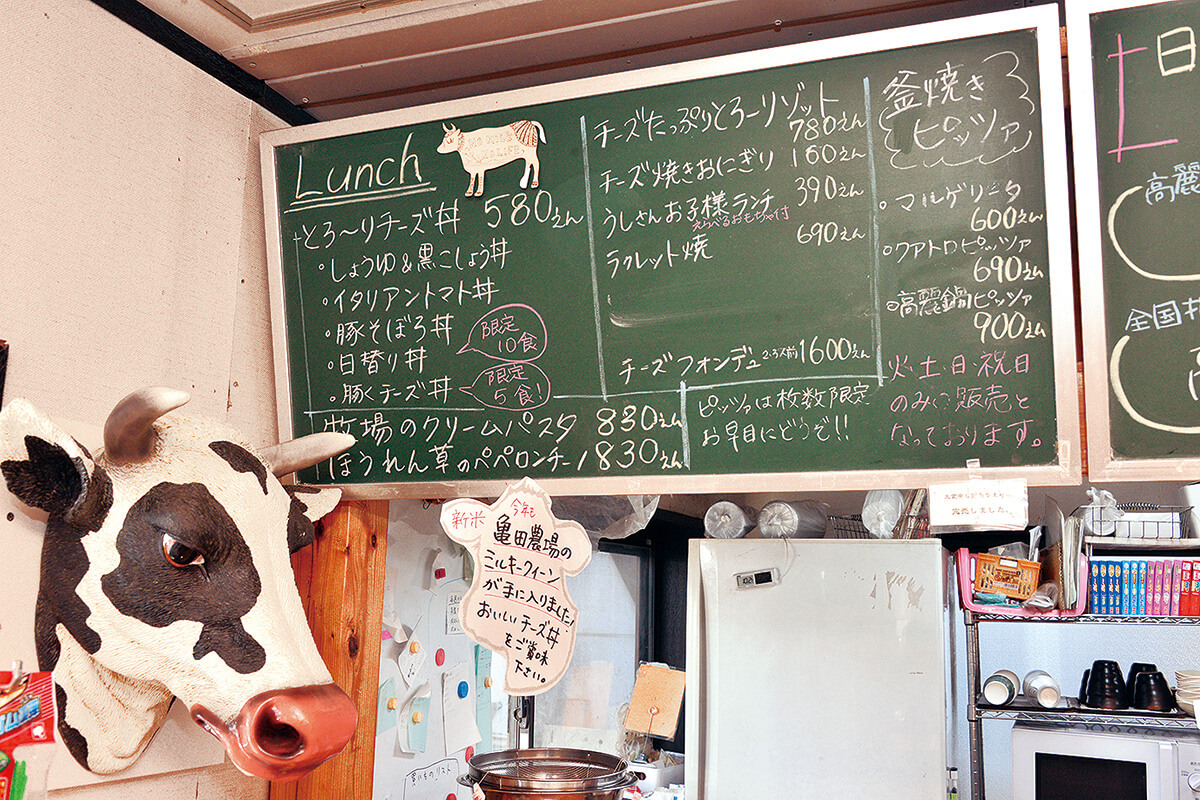 Lunch
とろ〜りチーズ丼 580えん
・しょうゆ&黒こしょう丼
・イタリアントマト丼
・豚そぼろ丼
・日替り丼
限定
10食
・豚くチーズ丼
限定
5食!
牧場のクリームパスタ 830えん
ほうれん草のペペロンチーノ 830えん
チーズたっぷりとろーリゾット
780えん
チーズ焼きおにぎり 160えん
うしさんお子様ランチ 390えん
えらべるおもちゃ付
ラクレット焼 690えん
チーズフォンデュ 2・3人前 1600えん
ピッツァは枚数限定
お早目にどうぞ!!
釜焼き
ピッツァ
・マルゲリータ
600えん
・クアトロピッツァ
690えん
・高麗鍋ピッツァ
900えん
火・土・日・祝日
のみの販売と
なっております。
土
日
高麗
全国
完売しました。
新米
今年も
亀田農場の
ミルキークィーン
が手に入りました!
おいしいチーズ丼
をご賞味
下さい。
買いものリスト